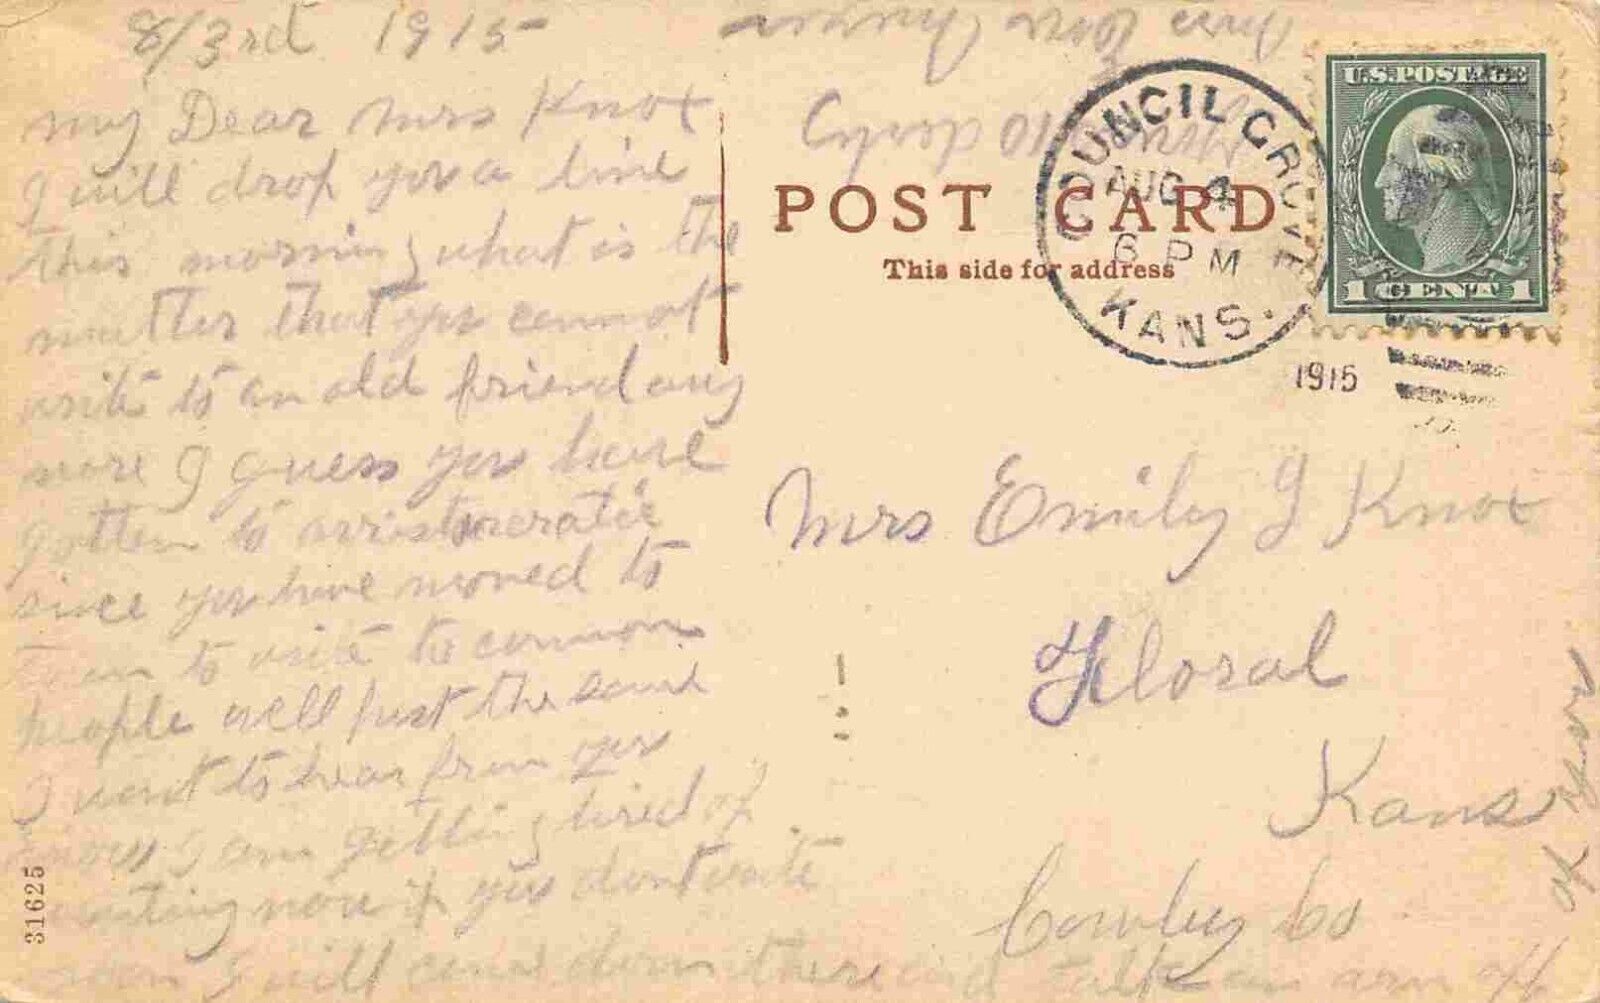 8/3rd 1915
my Dear Mrs Knox
I will drop you a line
this morning what is the
matter that you cannot
write to an old friend any
more I guess you have
gotten to arristocratic
since you have moved to
town to write to common
people well just the same
I want to hear from you
I am getting tired of
waiting now if you dont write
soon I will come down there and talk an arm off
of you
POST CARD
This side for address
COUNCIL GROVE
AUG 4
6 PM
KANS.
1915
U.S. POSTAGE
1 CENT 1
Mrs Emily J Knox
Floral
Kans
Cowley Co
31625